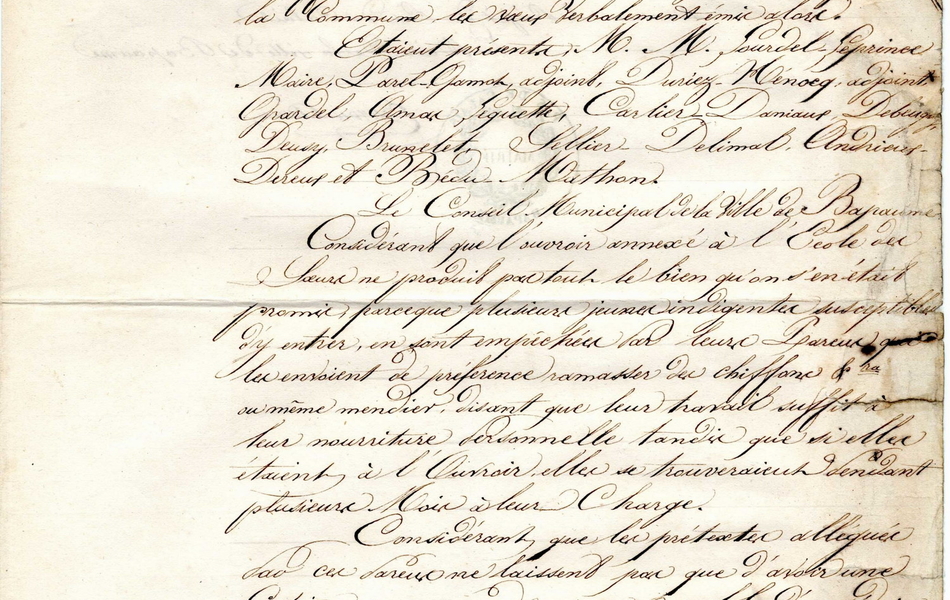 la Commune les vœux verbalement émis alors.
Etaient présents, M. M. Sourdel-Leprince
Maire, Parel-Gamot, adjoint, Duriez-Ménocq, adjoint
Grardel, Amas, Piquette, Cartier-Daniaux,
Deusy, Brunelet, Sellier-Delimal, Andrieus-
Dereux et Bédu-Mathon.
Le Conseil Municipal de la Ville de Bapaume
Considérant que l'ouvroir annexé à l'Ecole des
Sœurs ne produit pas tout le bien qu'on s'en était
promis, parceque plusieurs jeunes indigentes susceptibles
d'y entrer, en sont empêchées par leurs Parens, qui
les envoient de préférence ramasser des chiffons &ra
ou même mendier, disant que leur travail suffit à
leur nourriture personnelle tandis que si elles
étaient à l'Ouvroir elles se trouveraient pendant
plusieurs Mois à leur Charge.
Considérant que les prétextes allégués
par ces parens ne laissent pas que d'avoir une